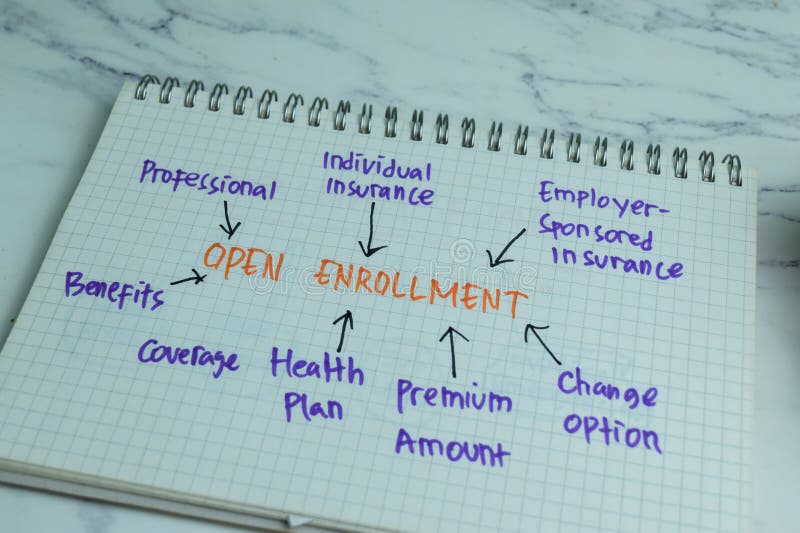 Professional
Individual
Insurance
Employer-
Sponsored
Insurance
OPEN ENROLLMENT
Benefits
Coverage
Health
Plan
Premium
Amount
Change
Option
dreamstime